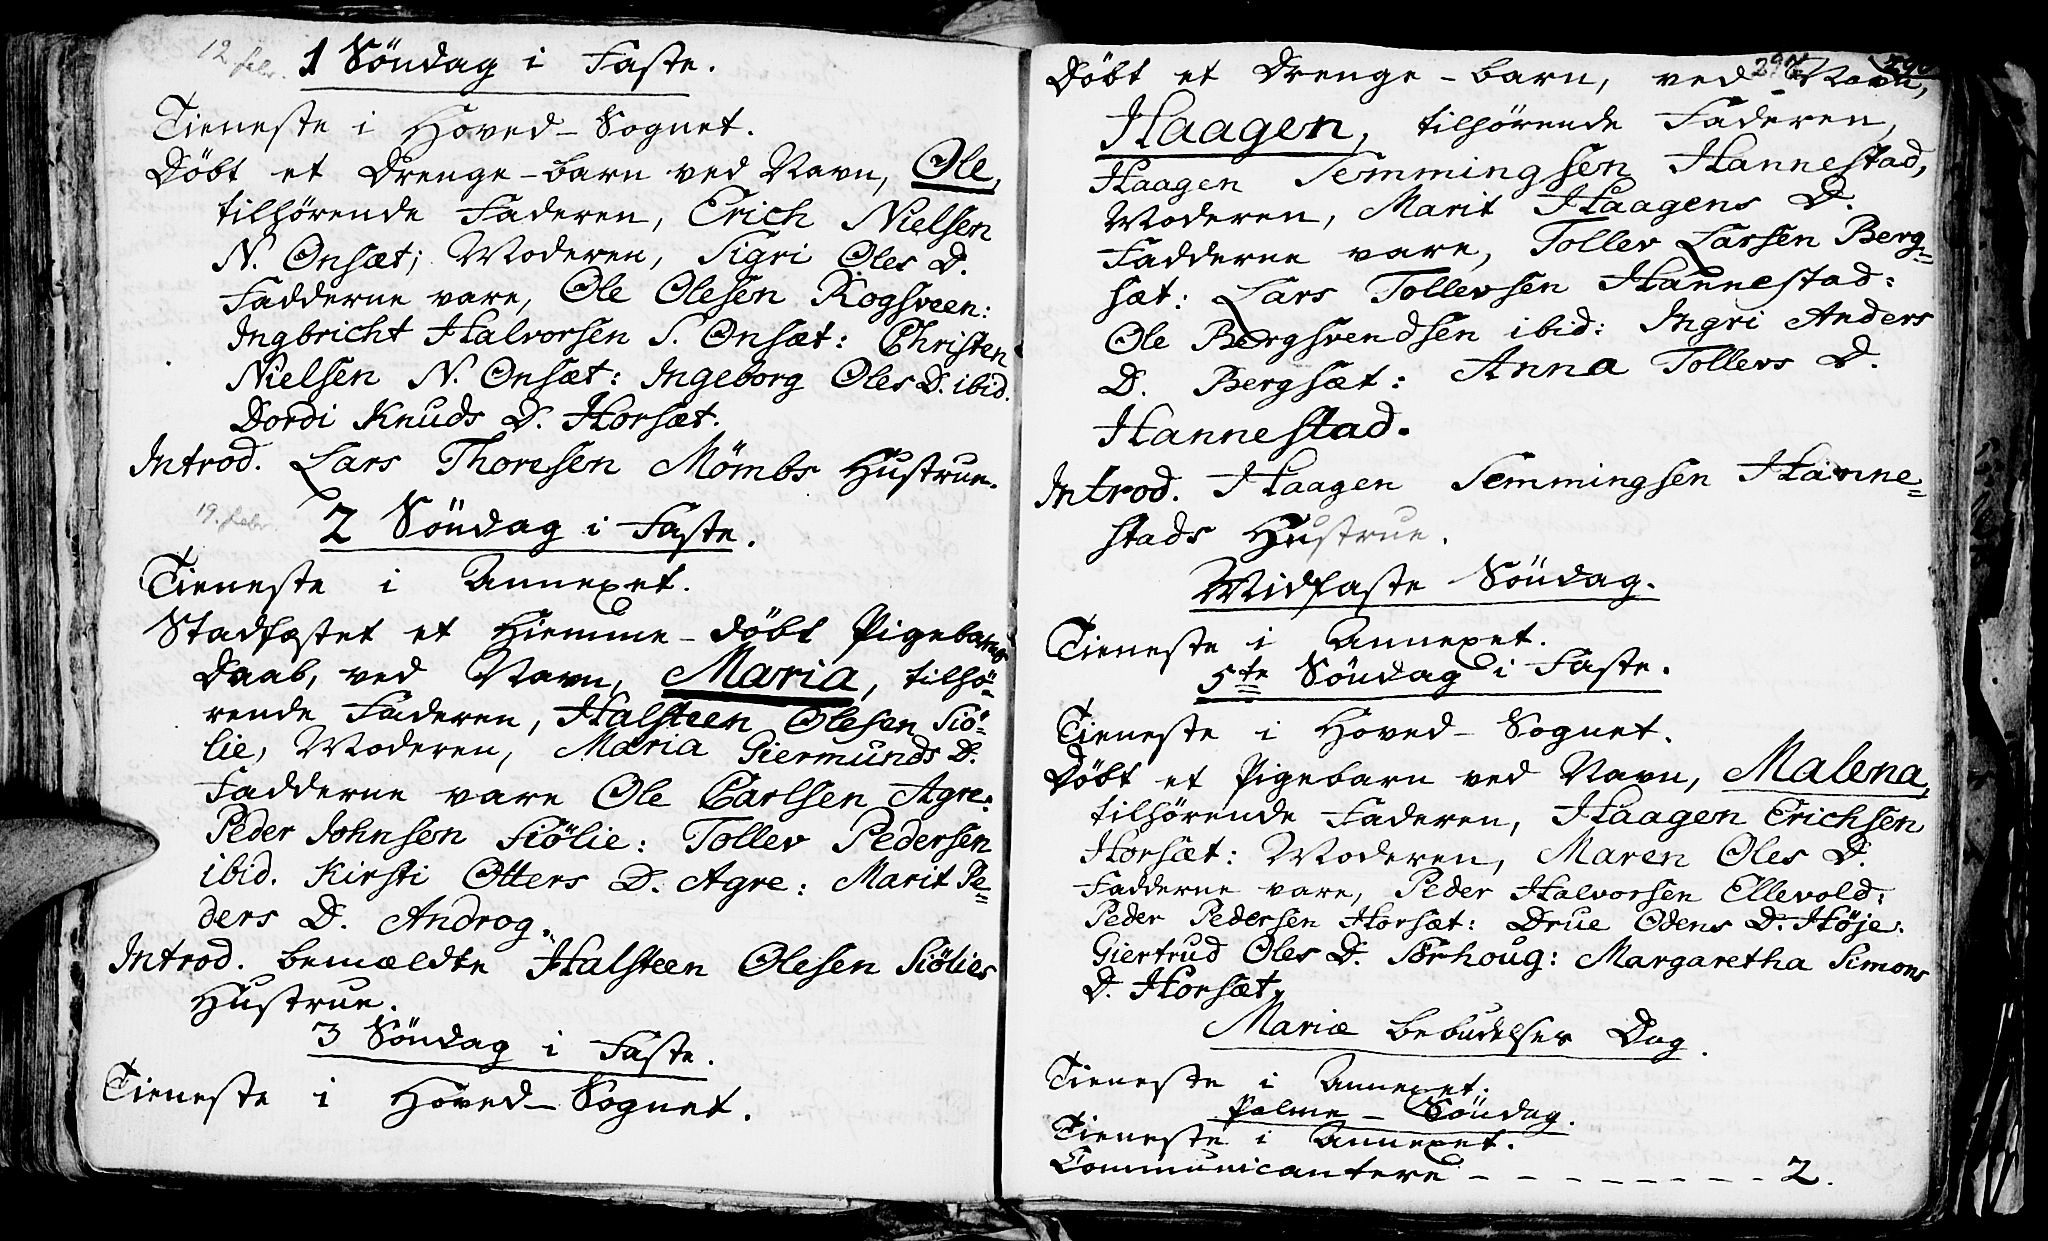 12 febr. 1 Söndag i Faste.
Tieneste i Hoved-Sognet.
Döbt et Drenge-barn ved Navn, Ole,
tilhörende Faderen, Erich Nielsen
N. Onsæt; Moderen, Sigri Oles D.
Fadderne vare, Ole Olesen Kogsveen:
Ingbricht Halvorsen S. Onsæt: Christen
Nielsen N. Onsæt: Ingeborg Oles D. ibid.
Dordi Knuds D. Horsæt.
Introd. Lars Thoresen Mömbs Hustrue.
19. febr. 2 Söndag i Faste.
Tieneste i Annexet.
Stadfæstet et Hiemme-döbt Pigebarns
Daab, ved Navn, Maria, tilhö-
rende Faderen, Halsteen Olesen Siö-
lie, Moderen, Maria Giermunds D.
Fadderne vare Ole Carlsen Agre:
Peder Johnsen Siölie: Tollev Pedersen
ibid. Kirsti Otters D. Agre: Marit Pe-
ders D. Androg.
Introd. bemældte Halsteen Olesen Siölies
Hustrue.
3 Söndag i Faste.
Tieneste i Hoved-Sognet.
Döbt et Drenge-barn, ved Navn,
Haagen, tilhörende Faderen,
Haagen Semmingsen Hannestad,
Moderen, Marit Haagens D.
Fadderne vare, Tollev Larsen Berg-
sæt: Lars Tollevsen Hannestad:
Ole Bergsvendsen ibid: Ingri Anders
D. Bergsæt: Anna Tollevs D.
Hannestad.
Introd. Haagen Semmingsen Hanne-
stads Hustrue.
Midfaste Söndag.
Tieneste i Annexet.
5te Söndag i Faste.
Tieneste i Hoved-Sognet.
Döbt et Pigebarn ved Navn, Malena,
tilhörende Faderen, Haagen Erichsen
Horsæt: Moderen, Maren Oles D.
Fadderne vare, Peder Halvorsen Ellevold:
Peder Pedersen Horsæt: Drue Odens D. Höje:
Giertrud Oles D. Sörhoug: Margaretha Simons
D. Horsæt.
Mariæ Bebudelses Dag.
Tieneste i Annexet.
Palme-Söndag.
Tieneste i Annexet.
Communicantere - - - - - - - - - 2.